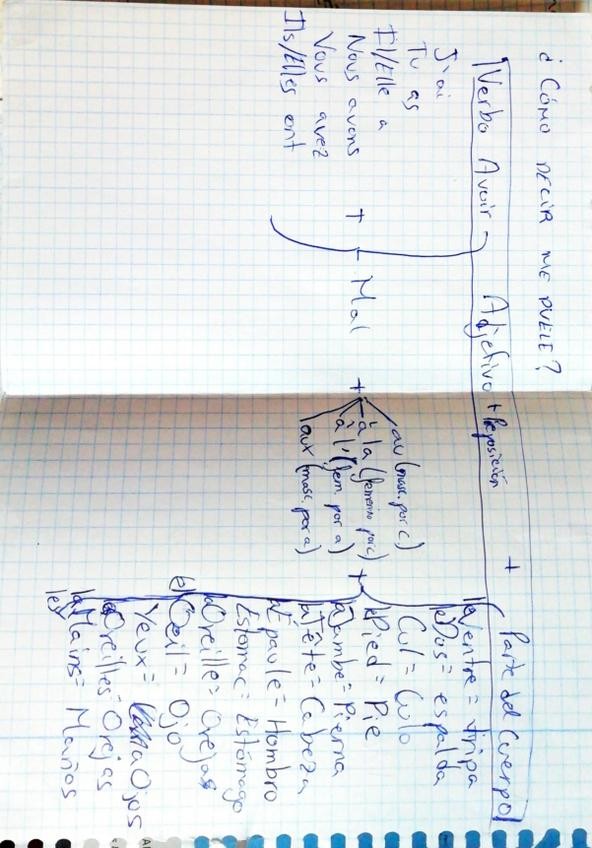 ¿CÓMO DECIR ME DUELE?
Verbo Avoir - Adjetivo + Preposición + Parte del Cuerpo
J'ai
Tu as
Il/Elle a
Nous avons
Vous avez
Ils/Elles ont
+ Mal +
au (masc. por c)
à la (femenino por c)
à l' (fem. por a)
aux (masc. por a)
+
Ventre = tripa
le Dos = espalda
Cul = Culo
le Pied = Pie
la Jambe = Pierna
la Tête = Cabeza
Épaule = Hombro
Estomac = Estómago
Oreille = Orejas
Oeil = Ojo
Yeux = Ojos
Oreilles = Orejas
les Mains = Manos